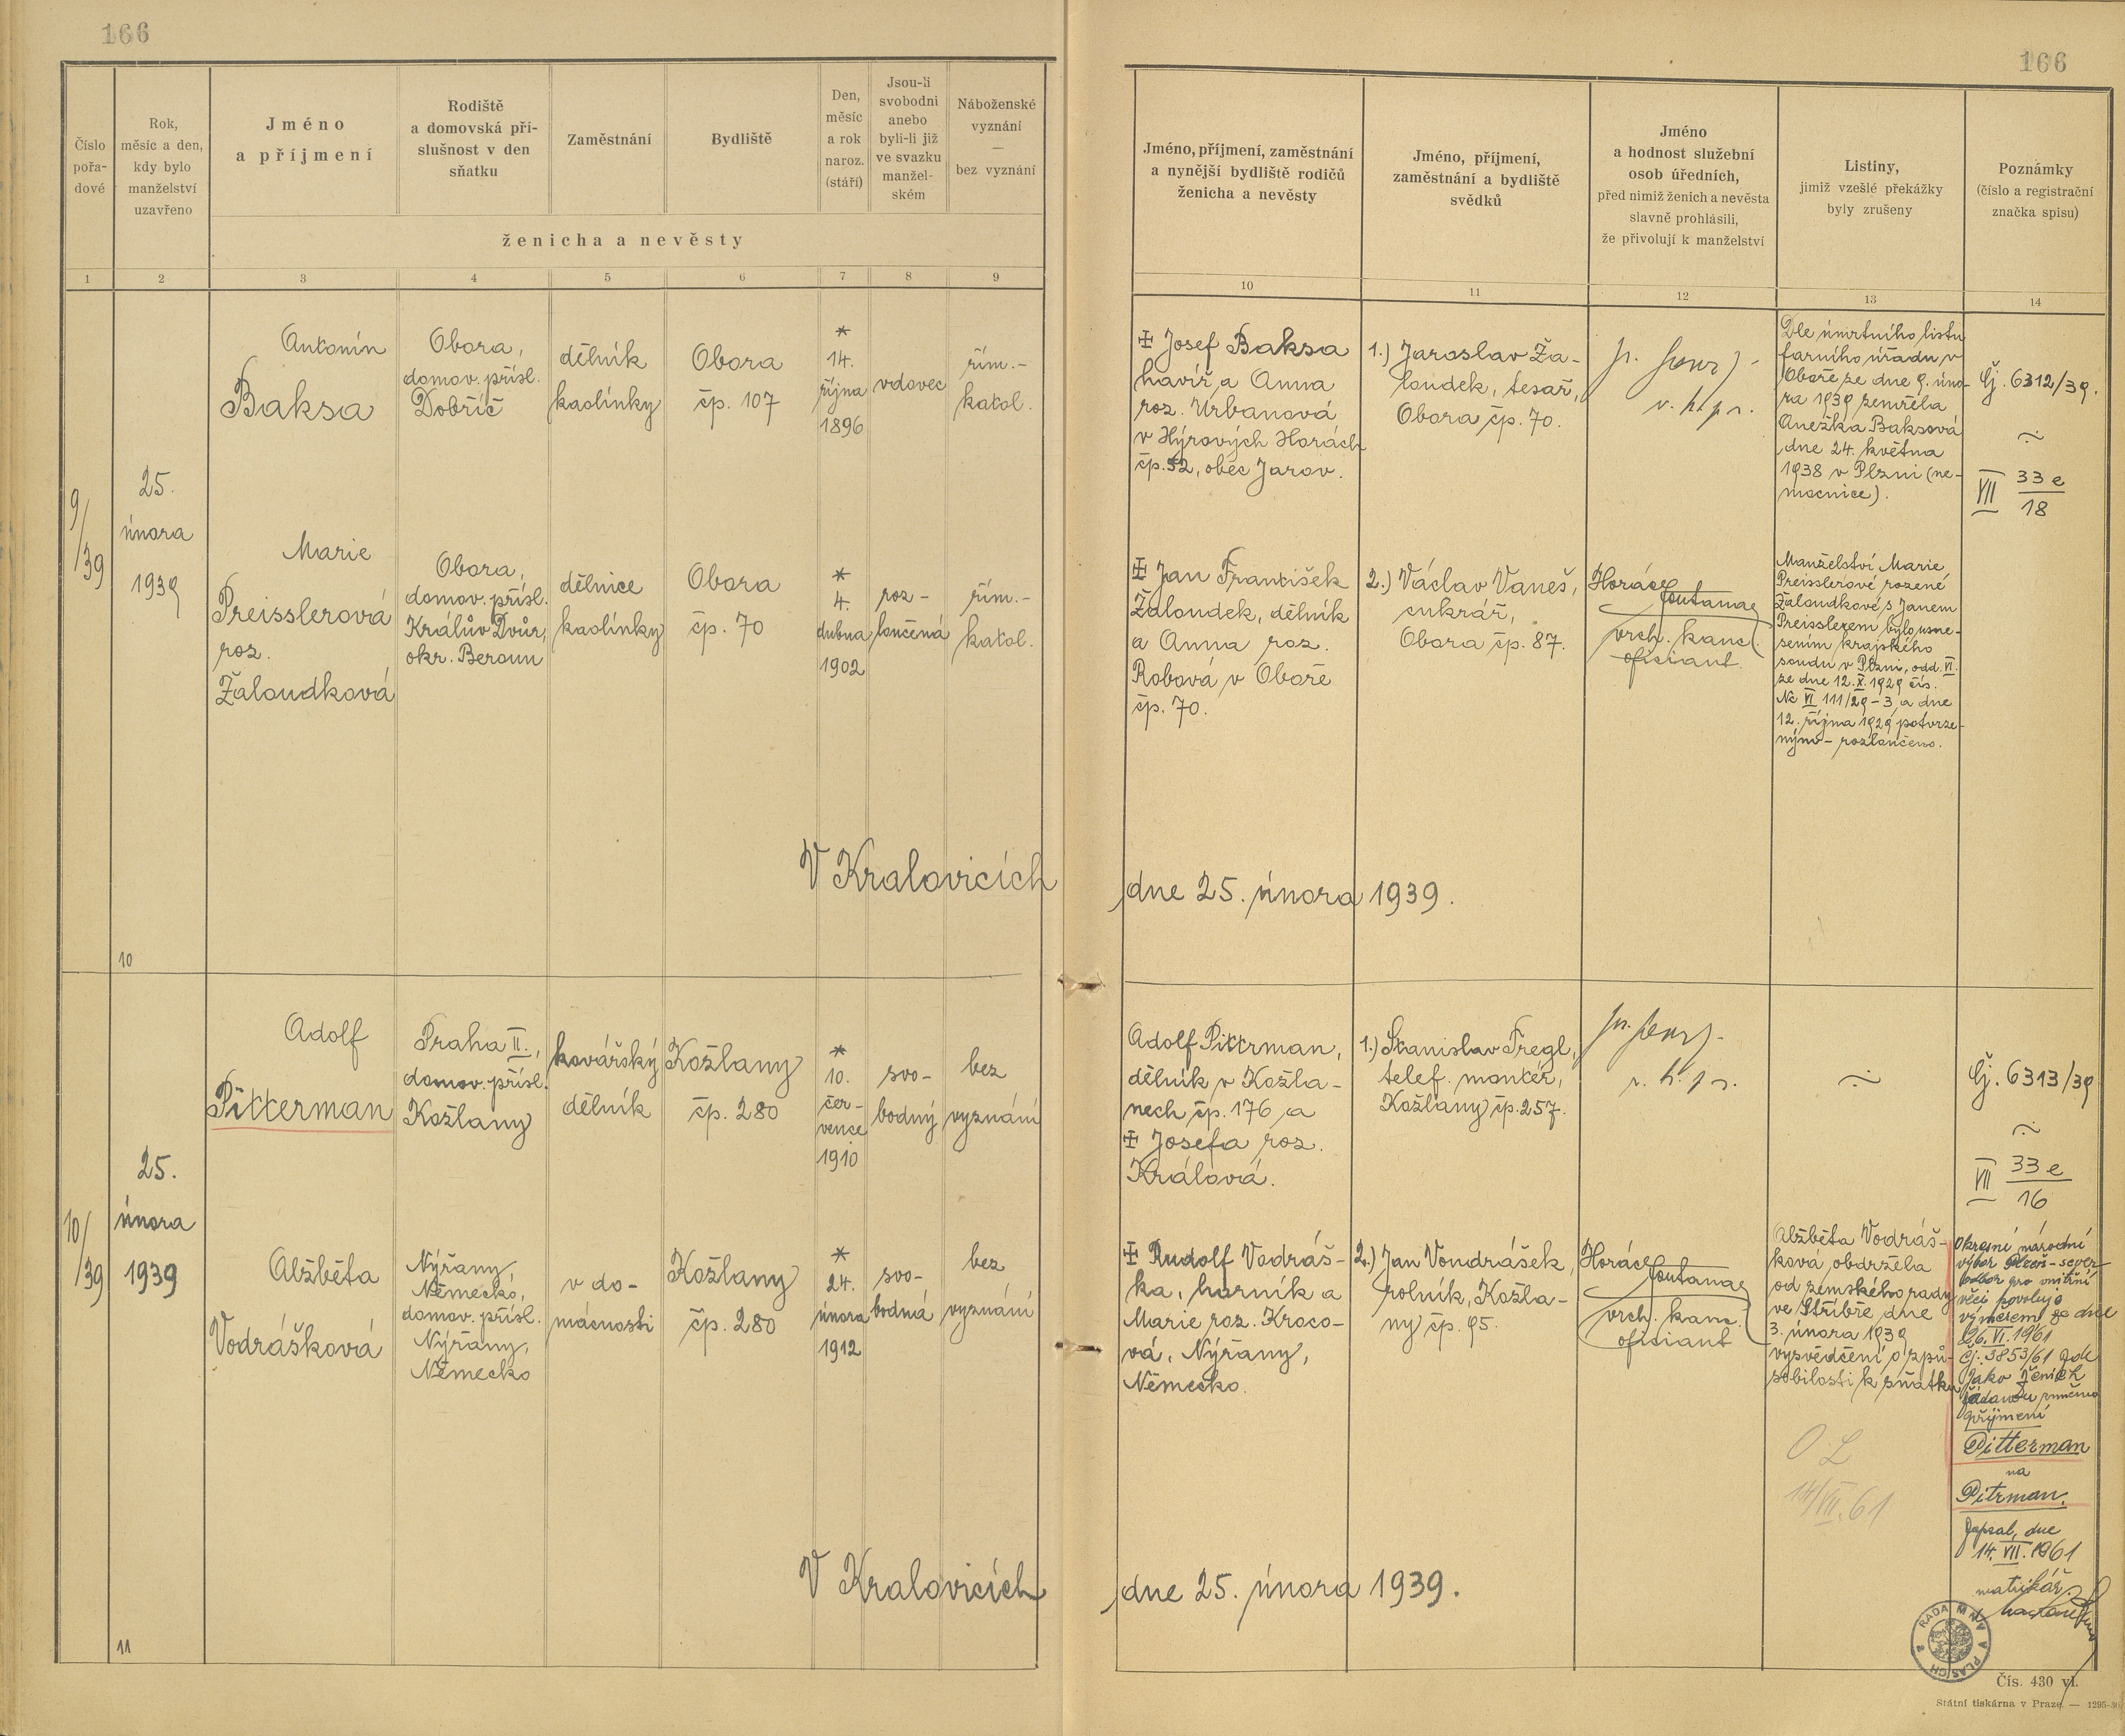 166
166
Číslo
pořa-
dové
Rok,
měsíc a den,
kdy bylo
manželství
uzavřeno
Jméno
a příjmení
Rodiště
a domovská pří-
slušnost v den
sňatku
Zaměstnání
Bydliště
Den,
měsíc
a rok
naroz.
(stáří)
Jsou-li
svobodni
anebo
byli-li již
ve svazku
manžel-
ském
Náboženské
vyznání
—
bez vyznání
ženicha a nevěsty
Jméno, příjmení, zaměstnání
a nynější bydliště rodičů
ženicha a nevěsty
Jméno, příjmení,
zaměstnání a bydliště
svědků
Jméno
a hodnost služební
osob úředních,
před nimiž ženich a nevěsta
slavně prohlásili,
že přivolují k manželství
Listiny,
jimiž vzešlé překážky
byly zrušeny
Poznámky
(číslo a registrační
značka spisu)
1 2 3 4 5 6 7 8 9
10 11 12 13 14
9/39
25.
února
1939
Antonín
Baksa
Obora,
domov. přísl.
Dobříč
dělník
kaolínky
Obora
čp. 107
*
14.
října
1896
vdovec
řím.-
katol.
Marie
Preisslerová
roz.
Žaloudková
Obora,
domov. přísl.
Králův Dvůr,
okr. Beroun
dělnice
kaolínky
Obora
čp. 70
*
4.
dubna
1902
roz-
loučená
řím.-
katol.
✠ Josef Baksa
havíř a Anna
roz. Urbanová
v Hýrových Horách
čp. 52, obec Jarov.
✠ Jan František
Žaloudek, dělník
a Anna roz.
Robová v Oboře
čp. 70.
1.) Jaroslav Ža-
loudek, tesař,
Obora čp. 70.
2.) Václav Vaneš,
cukrář,
Obora čp. 87.
v. h. p. r.
Horáce
Fontana
vrch. kancl.
oficiant.
Dle úmrtního listu
farního úřadu v
Oboře ze dne 9. úno-
ra 1939 zemřela
Anežka Baksová
dne 24. května
1938 v Plzni (ne-
mocnice).
Manželství Marie
Preisslerové rozené
Žaloudkové s Janem
Preisslerem bylo usne-
sením krajského
soudu v Plzni, odd. VI.
ze dne 12. X. 1929 čís.
Nc VI 111/29-3, a dne
12. října 1929 potvrze-
ným - rozloučeno.
Čj. 6312/39.
VII 33 e
18
V Kralovicích
dne 25. února 1939.
10
10/39
25.
února
1939
Adolf
Pitterman
Praha II.,
domov. přísl.
Kožlany
kovářský
dělník
Kožlany
čp. 280
*
10.
čer-
vence
1910
svo-
bodný
bez
vyznání
Alžběta
Vodrášková
Nýřany,
Německo,
domov. přísl.
Nýřany,
Německo
v do-
mácnosti
Kožlany
čp. 280
*
24.
února
1912
svo-
bodná
bez
vyznání
Adolf Pitterman,
dělník v Kožla-
nech čp. 176 a
✠ Josefa roz.
Králová.
✠ Rudolf Vodráš-
ka, horník a
Marie roz. Kroco-
vá, Nýřany,
Německo.
1.) Stanislav Fregl,
telef. montér,
Kožlany čp. 257.
2.) Jan Vondrášek,
rolník, Kožla-
ny čp. 95.
v. h. p. r.
Horáce
Fontana
vrch. kanc.
oficiant
Alžběta Vodráš-
ková obdržela
od zemského rady
ve Stříbře dne
3. února 1939
vysvědčení o způ-
sobilosti k sňatku
O L
14/VII.61
Čj. 6313/39
VII 33 e
16
Okresní národní
výbor Plzeň-sever
odbor pro vnitřní
věci povoluje
výměrem ze dne
26. VI. 1961
čj. 3853/61 zde
jako ženich
žádanou změnu
příjmení
Pitterman
na
Pitrman.
Zapsal, dne
14. VII. 1961
matrikář:
V Kralovicích
dne 25. února 1939.
11
RADA MNV V PLASÍCH
Čís. 430 vl.
Státní tiskárna v Praze. — 1295-36